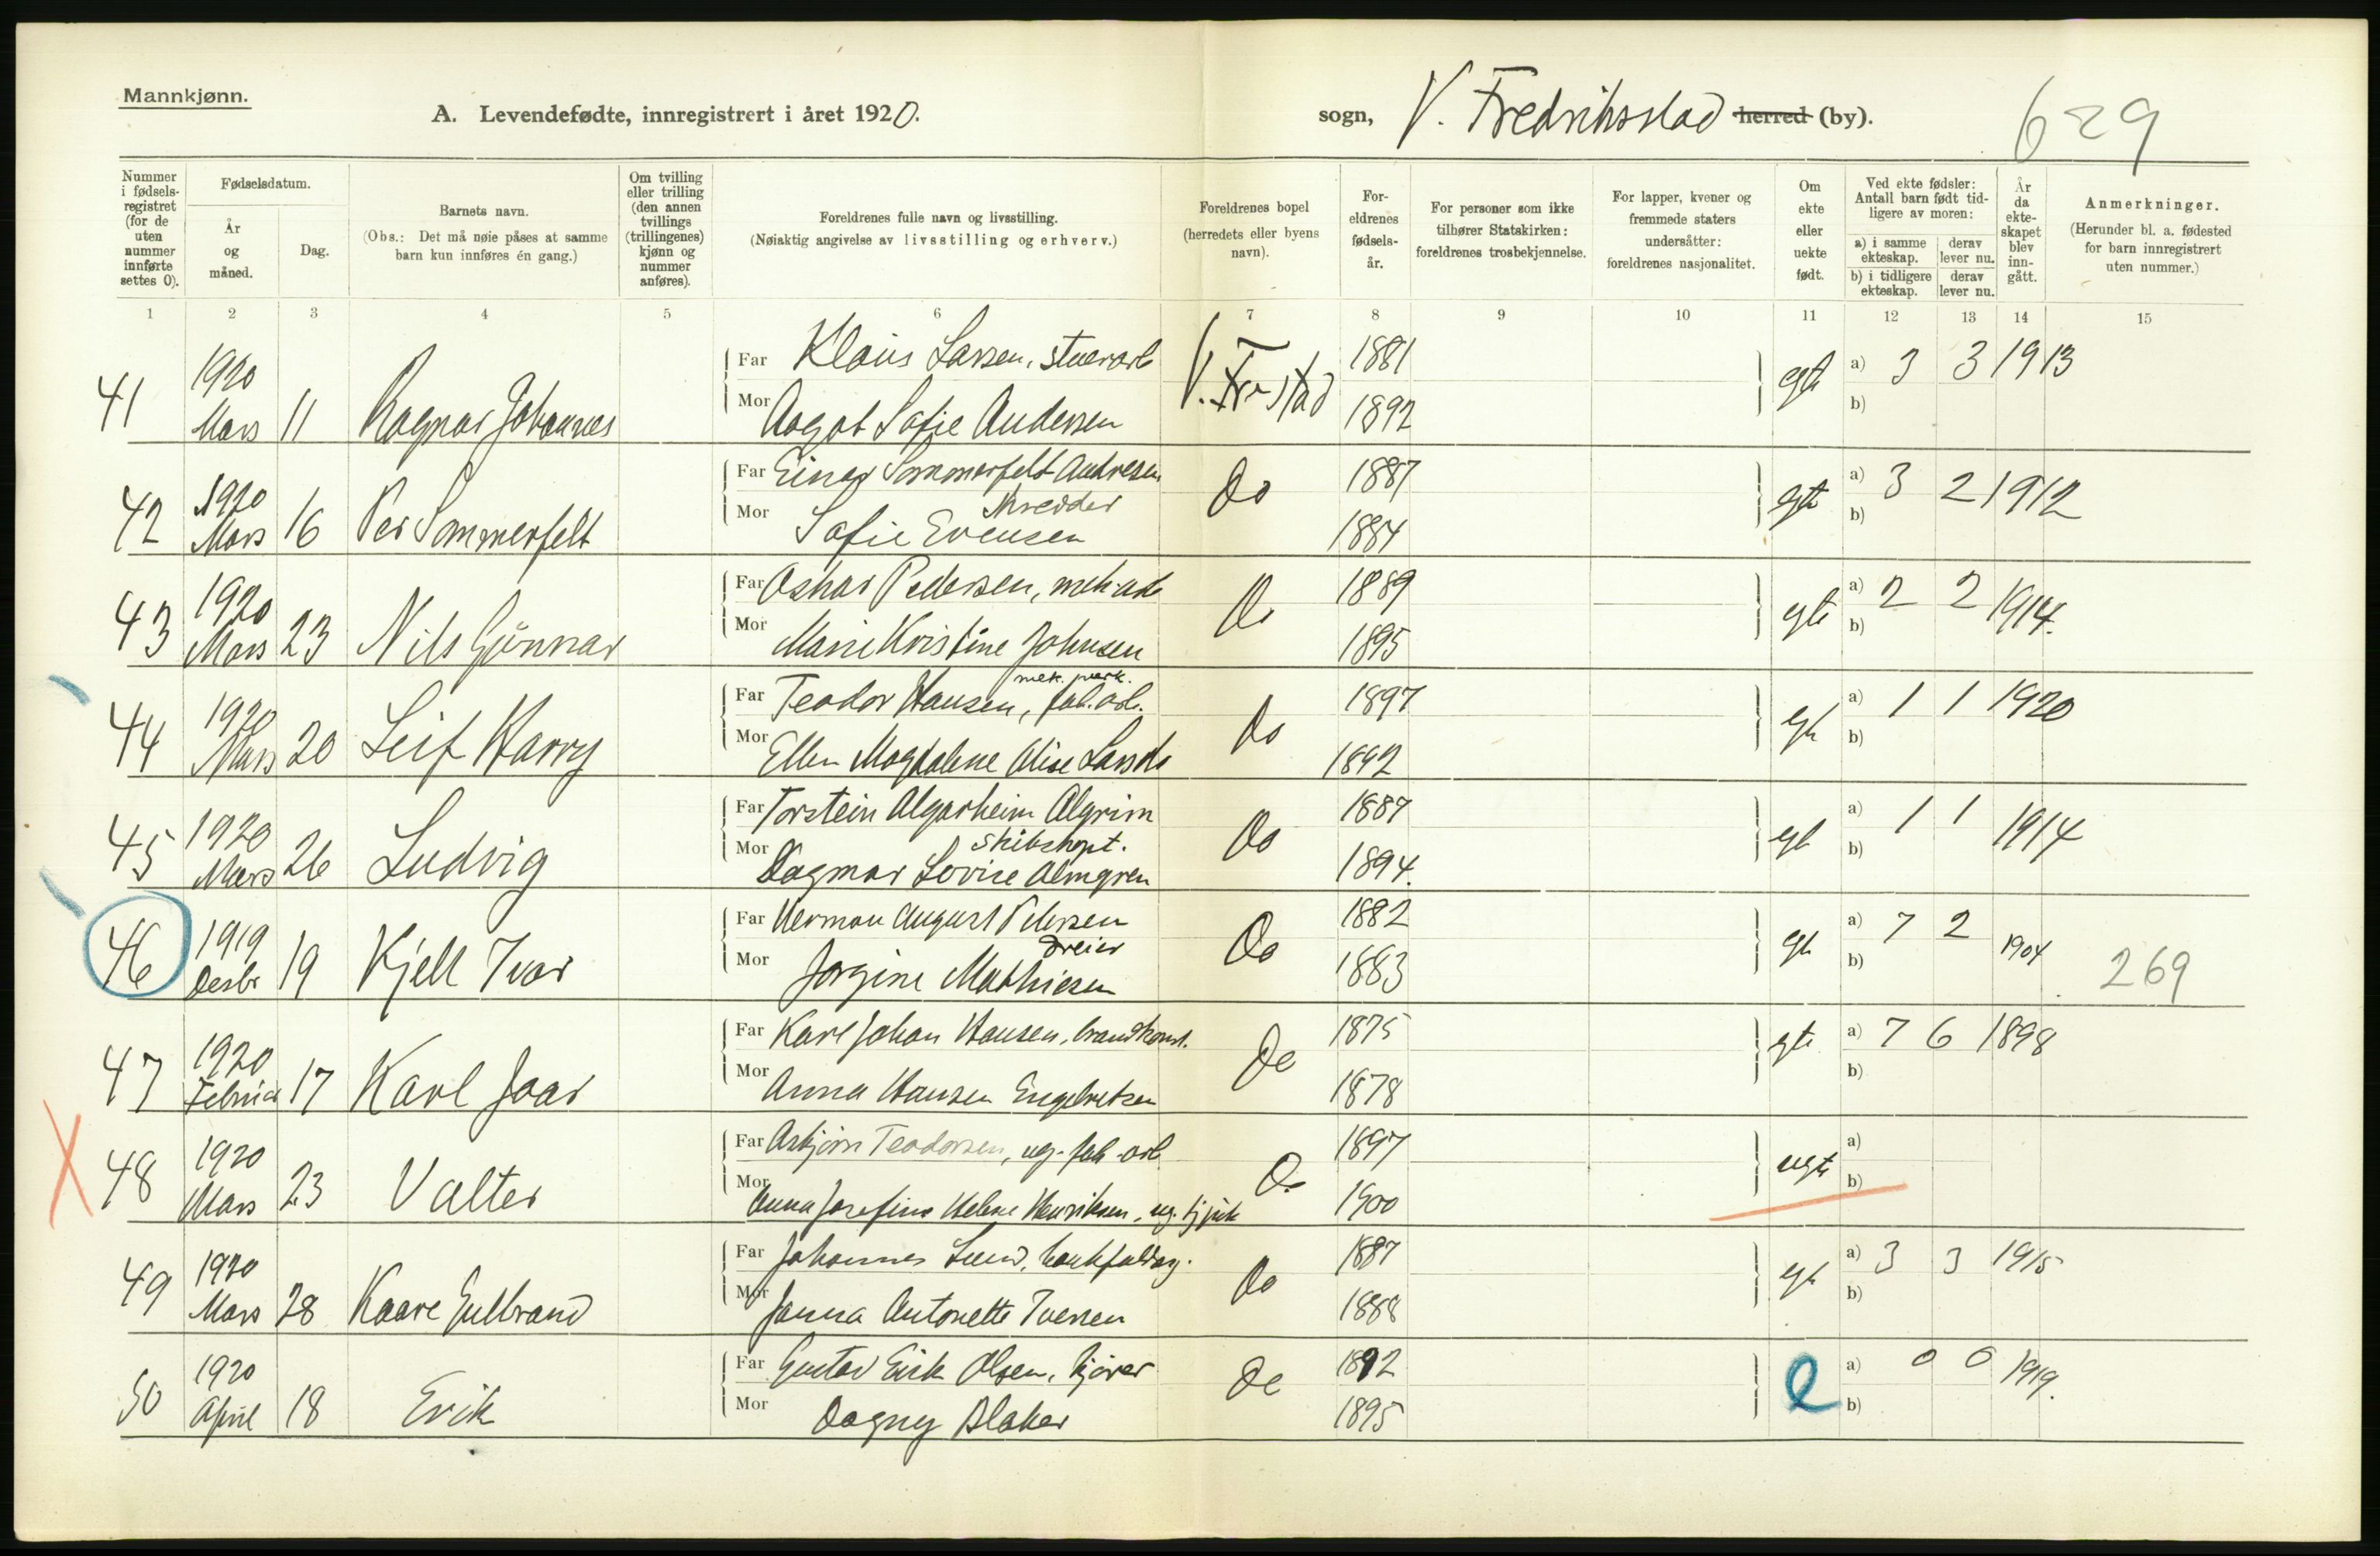 Mannkjønn.
A. Levendefødte, innregistrert i året 1920. sogn, V. Fredriksstad herred (by). 629
Nummer i fødselsregistret (for de uten nummer innførte settes 0).
Fødselsdatum.
År og måned.
Dag.
Barnets navn.
(Obs.: Det må nøie påses at samme barn kun innføres én gang.)
Om tvilling eller trilling (den annen tvillings (trillingenes) kjønn og nummer anføres).
Foreldrenes fulle navn og livsstilling.
(Nøiaktig angivelse av livsstilling og erhverv.)
Foreldrenes bopel (herredets eller byens navn).
Foreldrenes fødselsår.
For personer som ikke tilhører Statskirken: foreldrenes trosbekjennelse.
For lapper, kvener og fremmede staters undersåtter: foreldrenes nasjonalitet.
Om ekte eller uekte født.
Ved ekte fødsler: Antall barn født tidligere av moren:
a) i samme ekteskap. derav lever nu.
b) i tidligere ekteskap. derav lever nu.
År da ekteskapet blev inngått.
Anmerkninger.
(Herunder bl. a. fødested for barn innregistrert uten nummer.)
1 2 3 4 5 6 7 8 9 10 11 12 13 14 15
41 1920 Mars 11 Ragnar Johannes
Far Klaus Larsen, stuerarb V. Fr.stad 1881 egte a) 3 3 1913
Mor Aagot Sofie Andersen 1892 b)
42 1920 Mars 16 Per Sommerfelt
Far Einar Sommerfelt Andresen Do 1887 egte a) 3 2 1912
skredder
Mor Sofie Evensen 1884 b)
43 1920 Mars 23 Nils Gunnar
Far Oskar Pedersen, mek. arb Do 1889 egte a) 2 2 1914.
Mor Marie Kristine Johnsen 1895 b)
44 1920 Mars 20 Leif Harry
mek. verk.
Far Teodor Hansen, fab. arb. Do 1897 egte a) 1 1 1920
Mor Ellen Magdalene Alise 1892 b)
45 1920 Mars 26 Ludvig
Far Torstein Algarheim Algrim Do 1887 egte a) 1 1 1914
Skibskapt.
Mor Dagmar Lovise Almgren 1894. b)
46 1919 Desbr 19 Kjell Ivar
Far Herman August Petersen Do 1882 egte a) 7 2 1904 269
dreier
Mor Jorgine Mathiesen 1883 b)
47 1920 Februar 17 Karl Joar
Far Karl Johan Hansen, brandkonst. Do 1875 egte a) 7 6 1898
Mor Anna Hansen Engebretsen 1878 b)
48 1920 Mars 23 Valter
Far Asbjørn Teodorsen, ug. fab. arb Do 1897 uegte a)
Mor Anna Josefine Helene Henriksen, ug. tjpik 1900 b)
49 1920 Mars 28 Kaare Gulbrand
Far Johannes Lund, bankfuldm. Do 1887 egte a) 3 3 1915
Mor Janna Antonette Iversen 1888 b)
50 1920 April 18 Erik
Far Gustav Eirik Olsen, kjører Do 1892 e a) 0 0 1919.
Mor Dagny Blaker 1895 b)